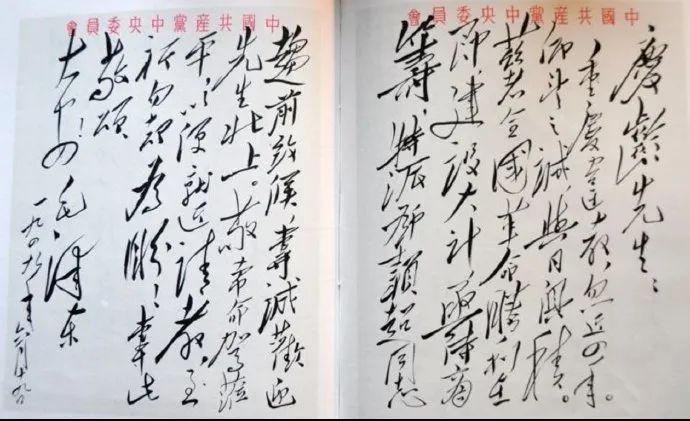 中國共產黨中央委員會
慶齡先生:
重慶違教,忽近四年。
仰望之誠,與日俱積。
茲者全國革命勝利在
即,建設大計,亟待商
籌,特派鄧穎超同志
中國共產黨中央委員會
趨前致候,專誠歡迎
先生北上。敬希命駕蒞
平,以便就近請教,至
祈勿却為盼!專此
敬頌
大安!毛澤東
一九四九年六月十九